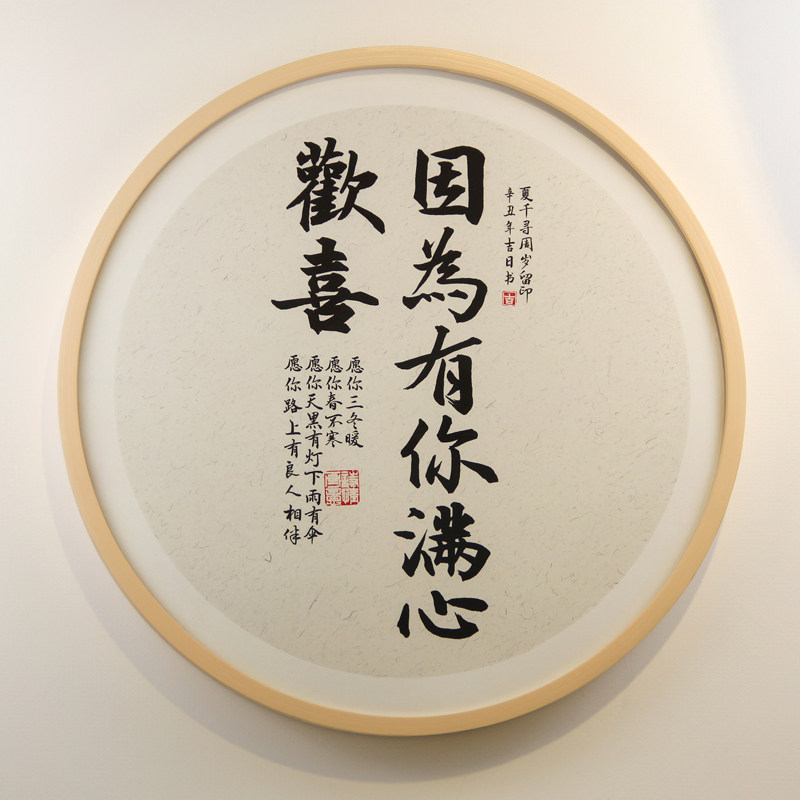 夏千寻周岁留印
辛丑年吉日书
因為有你满心
歡喜
愿你三冬暖
愿你春不寒
愿你天黑有灯下雨有伞
愿你路上有良人相伴